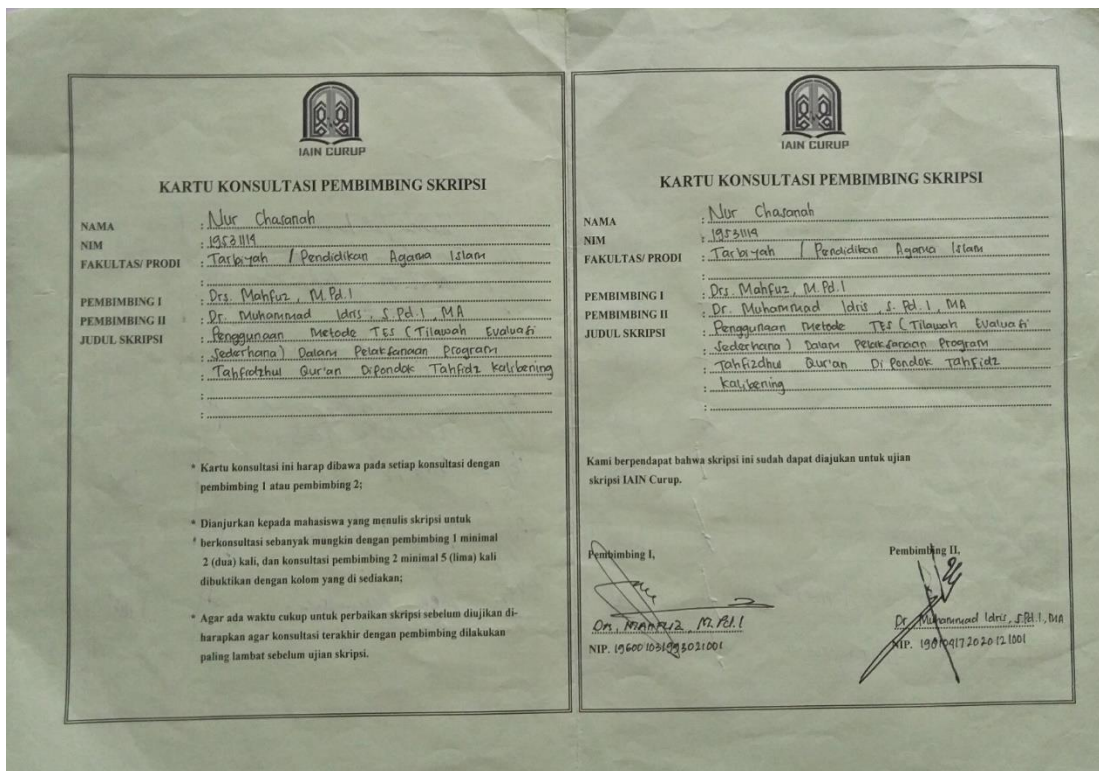 IAIN CURUP
KARTU KONSULTASI PEMBIMBING SKRIPSI
NAMA : Nur Chasanah
NIM : 19531119
FAKULTAS/ PRODI : Tarbiyah / Pendidikan Agama Islam
:
PEMBIMBING I : Drs. Mahfuz, M.Pd.I
PEMBIMBING II : Dr. Muhammad Idris, S.Pd.I, MA
JUDUL SKRIPSI : Penggunaan Metode TES (Tilawah Evaluasi
: Sederhana) Dalam Pelaksanaan Program
: Tahfidzhul Qur'an Dipondok Tahfidz Kalibening
:
:
* Kartu konsultasi ini harap dibawa pada setiap konsultasi dengan
pembimbing 1 atau pembimbing 2;
* Dianjurkan kepada mahasiswa yang menulis skripsi untuk
berkonsultasi sebanyak mungkin dengan pembimbing 1 minimal
2 (dua) kali, dan konsultasi pembimbing 2 minimal 5 (lima) kali
dibuktikan dengan kolom yang di sediakan;
* Agar ada waktu cukup untuk perbaikan skripsi sebelum diujikan di-
harapkan agar konsultasi terakhir dengan pembimbing dilakukan
paling lambat sebelum ujian skripsi.
IAIN CURUP
KARTU KONSULTASI PEMBIMBING SKRIPSI
NAMA : Nur Chasanah
NIM : 19531119
FAKULTAS/ PRODI : Tarbiyah / Pendidikan Agama Islam
:
PEMBIMBING I : Drs. Mahfuz, M.Pd.I
PEMBIMBING II : Dr. Muhammad Idris, S.Pd.I, MA
JUDUL SKRIPSI : Penggunaan Metode TES (Tilawah Evaluasi
: Sederhana) Dalam Pelaksanaan Program
: Tahfizdhul Qur'an Di Pondok Tahfidz
: Kalibening
:
Kami berpendapat bahwa skripsi ini sudah dapat diajukan untuk ujian
skripsi IAIN Curup.
Pembimbing I,
Drs. MAHFUZ, M.Pd.I
NIP. 196001031993021001
Pembimbing II,
Dr. Muhammad Idris, S.Pd.I, MA
NIP.